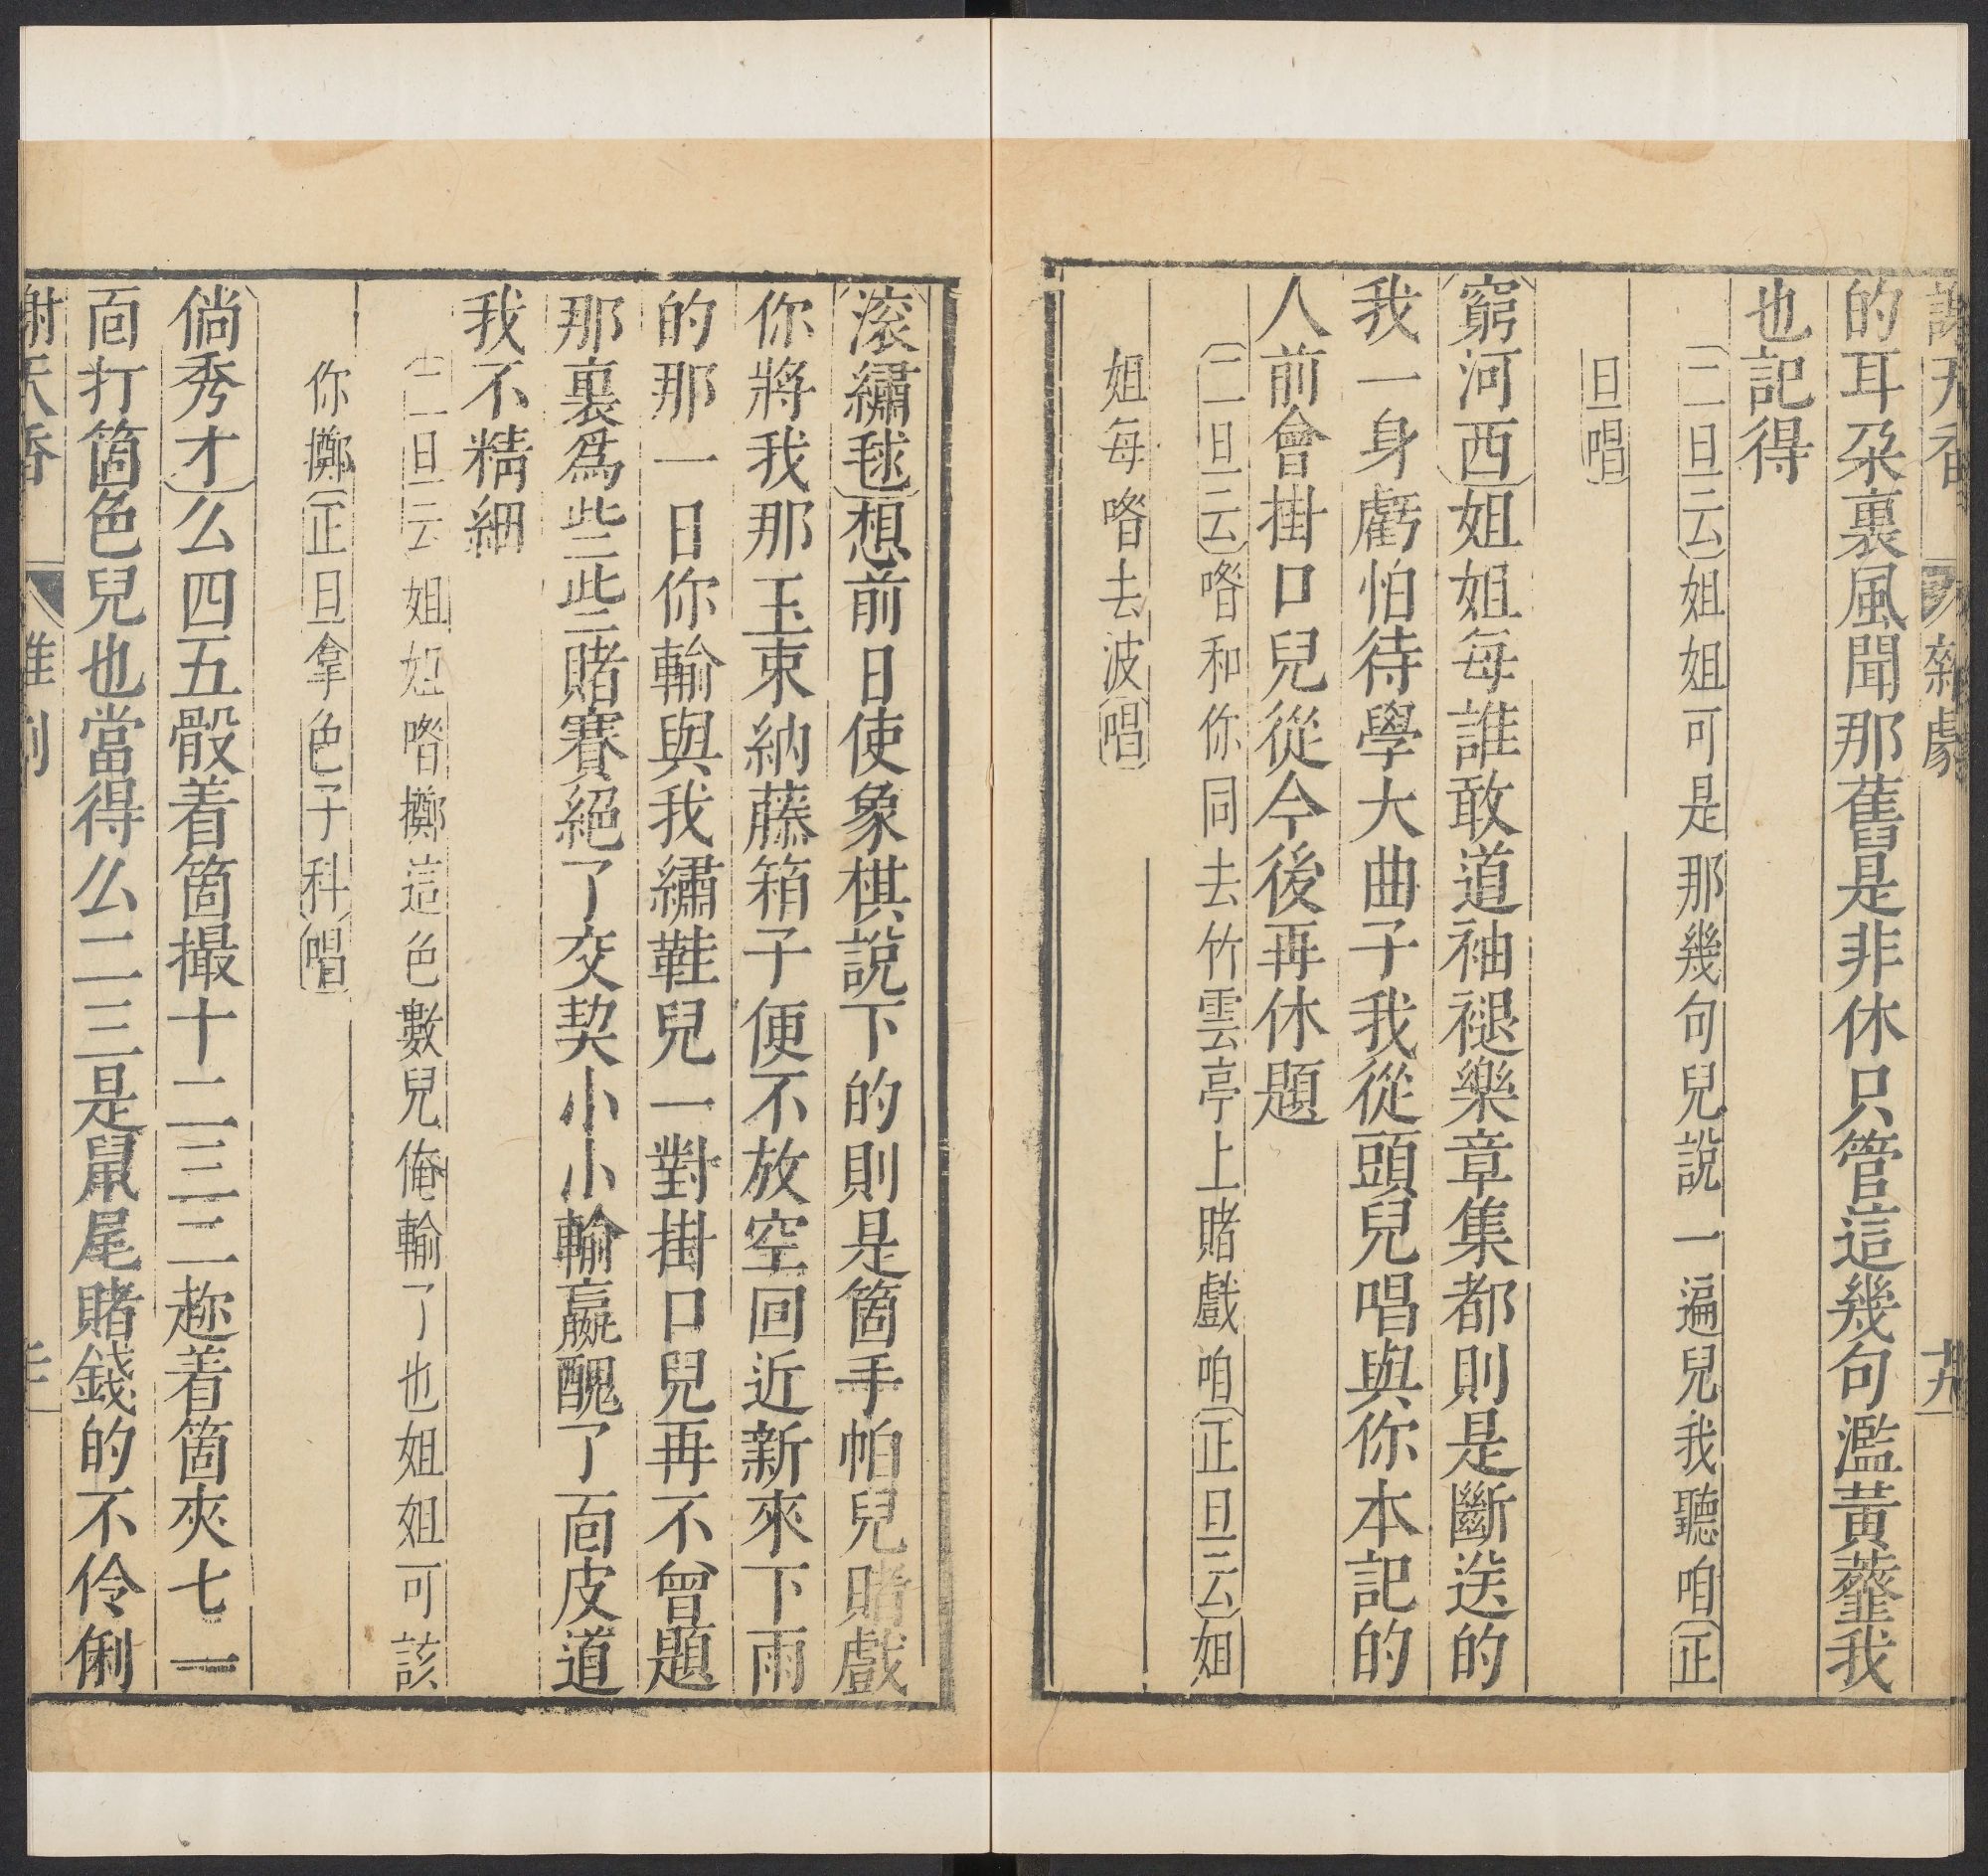 謝天香 雜劇 十九
的耳朶裏風聞那舊是非休只管這幾句濫黃虀我
也記得
(二旦云)姐姐可是那幾句兒說一遍兒我聽咱(正
旦唱)
(窮河西)姐姐每誰敢道袖褪樂章集都則是斷送的
我一身虧怕待學大曲子我從頭兒唱與你本記的
人前會掛口兒從今後再休題
(二旦云)喒和你同去竹雲亭上賭戲咱(正旦云)姐
姐每喒去波(唱)
(滚繡毬)想前日使象棋說下的則是箇手帕兒賭戲
你將我那玉束納藤箱子便不放空回近新來下雨
的那一日你輸與我繡鞋兒一對掛口兒再不曾題
那裏爲些些賭賽絕了交契小小輸贏醜了面皮道
我不精細
(二旦云)姐姐喒擲這色數兒俺輸了也姐姐可該
你擲(正旦拿色子科)(唱)
(倘秀才)么四五骰着箇撮十二三二趂着箇夾七一
面打箇色兒也當得么二三是鼠尾賭錢的不伶俐
謝天香 雜劇